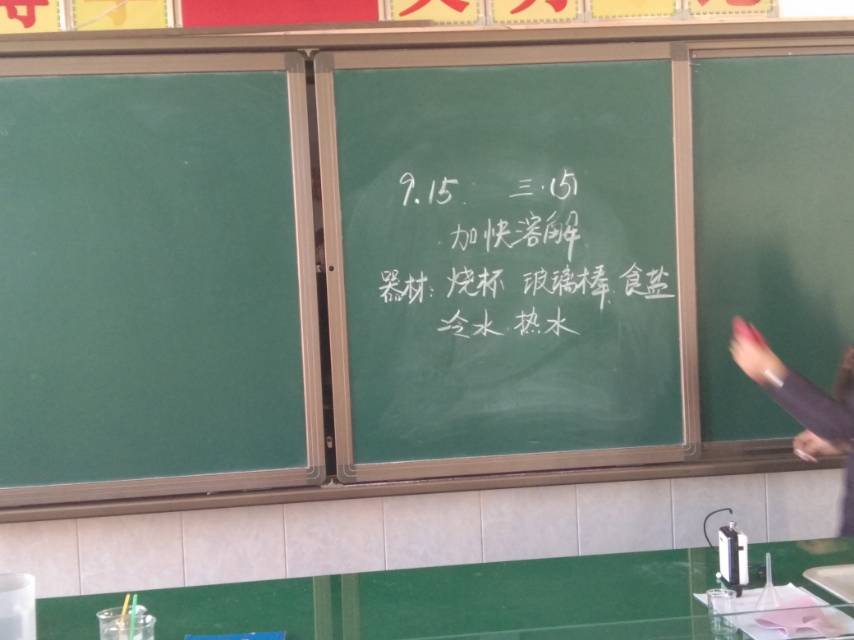 9.15 三.(5)
加快溶解
器材: 烧杯 玻璃棒 食盐
冷水 热水